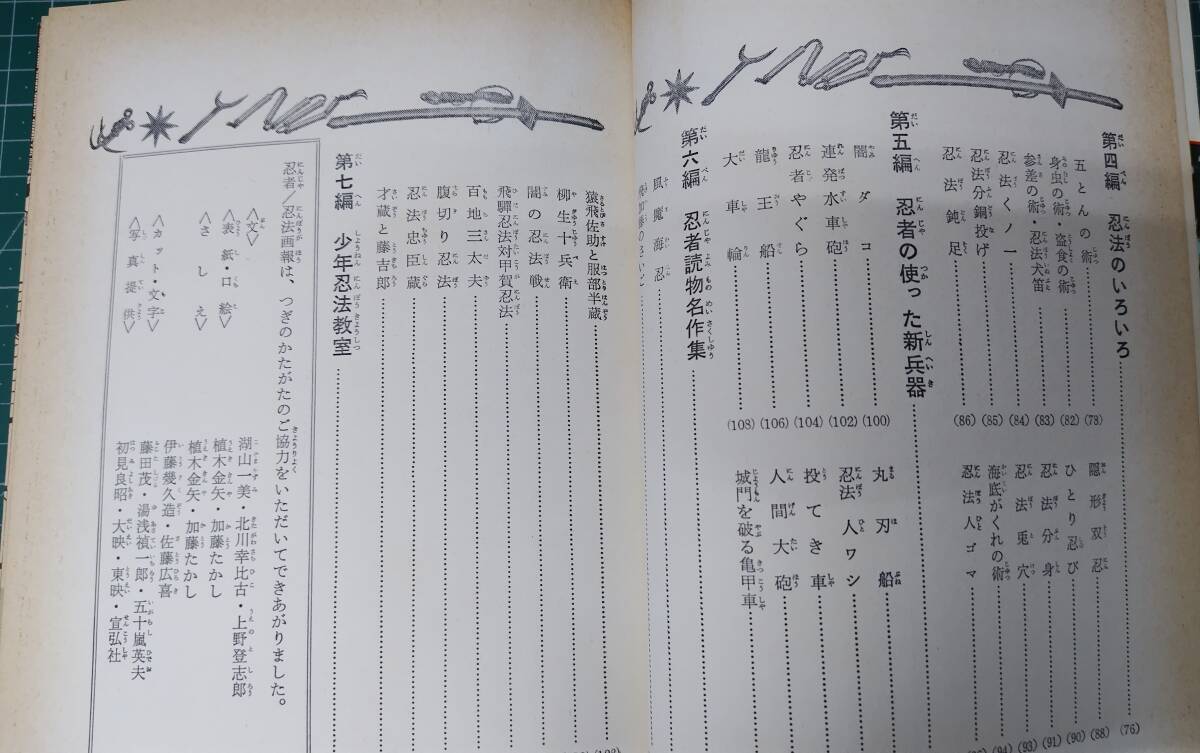 第四編　忍法のいろいろ……(76)
五とんの術……(78)
身虫の術・盗食の術……(82)
参差の術・忍法犬笛……(83)
忍法くノ一……(84)
忍法分銅投げ……(85)
忍法鈍足……(86)
隠形双忍……(88)
ひとり忍び……(90)
忍法分身……(91)
忍法兎穴……(93)
海底がくれの術……(94)
忍法人ゴマ……
第五編　忍者の使った新兵器……
闇ダコ……(100)
連発水車砲……(102)
忍者やぐら……(104)
龍王船……(106)
大車輪……(108)
丸刃船……
忍法人ワシ……
投てき車……
人間大砲……
城門を破る亀甲車……
第六編　忍者読物名作集……
風魔海忍……
猿飛佐助と服部半蔵……
柳生十兵衛……
闇の忍法戦……
飛驒忍法対甲賀忍法……
百地三太夫……
腹切り忍法……
忍法忠臣蔵……
才蔵と藤吉郎……
第七編　少年忍法教室……
忍者／忍法画報は、つぎのかたがたのご協力をいただいてできあがりました。
〈文〉　湖山一美・北川幸比古・上野登志郎
〈表紙・口絵〉　植木金矢・加藤たかし
〈さしえ〉　植木金矢・加藤たかし
伊藤幾久造・佐藤広喜
〈カット・文字〉　藤田茂・湯浅禎一郎・五十嵐英夫
〈写真提供〉　初見良昭・大映・東映・宣弘社